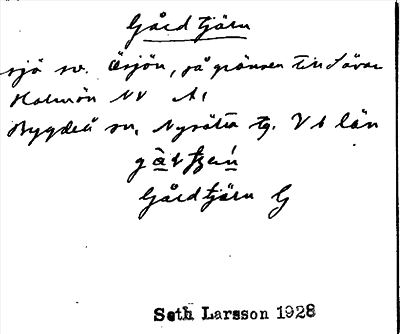 Gårdtjärn
sjö sv. Åsjön, på gränsen till Sävar
Holmön NV A1
Bygdeå sn, Nysätra tg. Vb län
Gårdtjärn G
Seth Larsson 1928